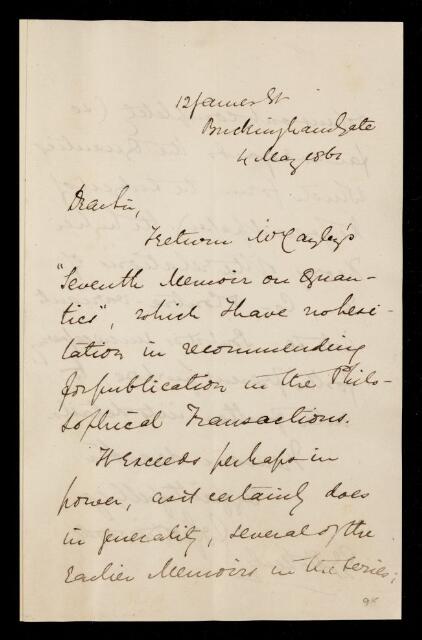 12 James St
Buckingham Gate
4 May 1861
Dear Sir,
I return Mr Cayley's
"Seventh Memoir on Quan-
tics", which I have no hesi-
tation in recommending
for publication in the Philo-
sophical Transactions.
It exceeds perhaps in
power, as it certainly does
in generality, several of the
Earlier Memoirs in the Series;